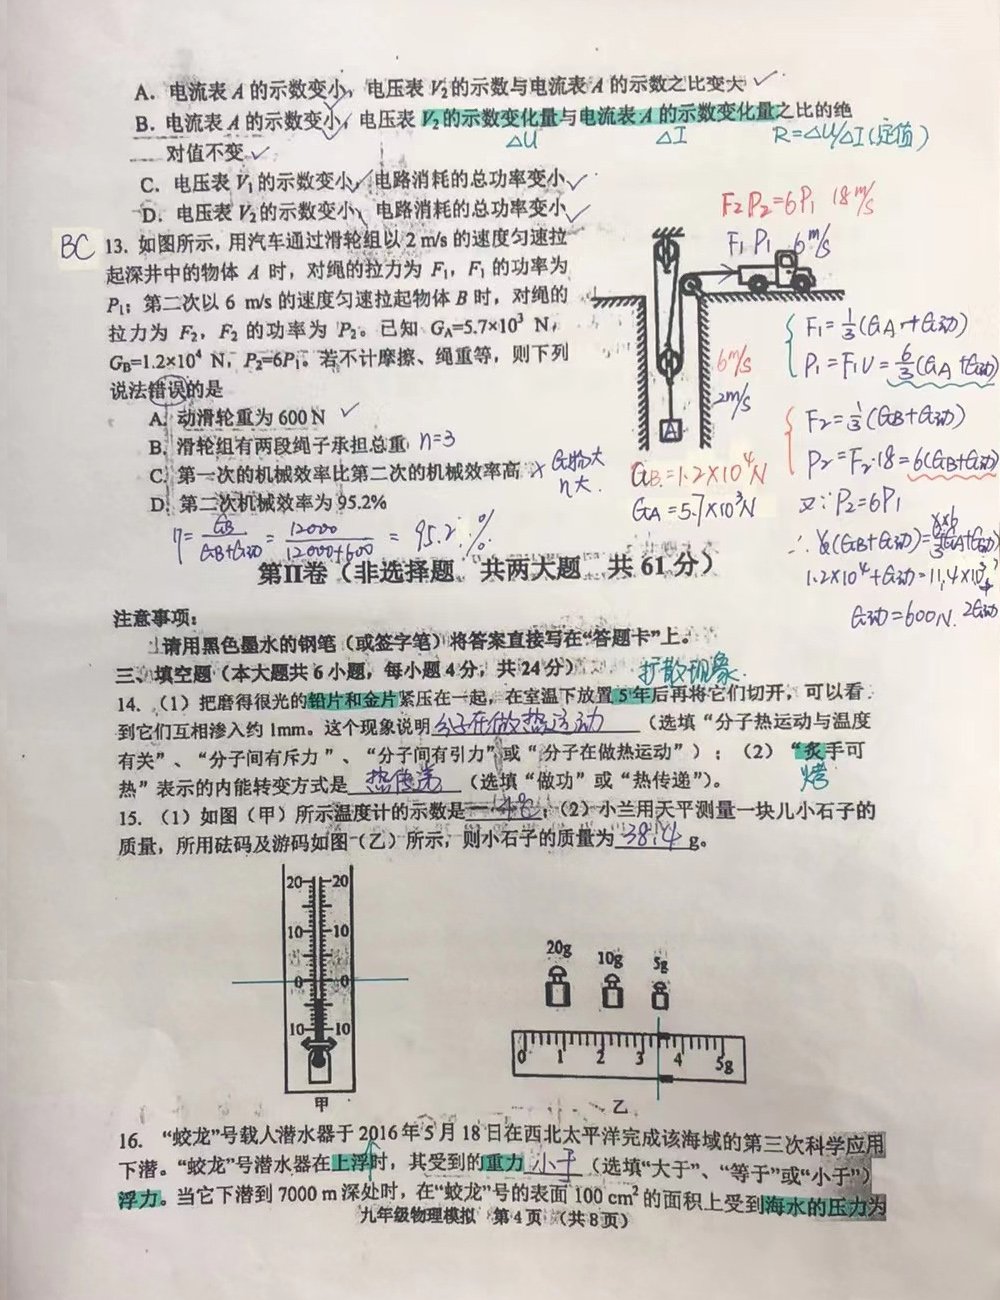 A. 电流表 A 的示数变小, 电压表 V₂的示数与电流表 A 的示数之比变大 ✓
B. 电流表 A 的示数变小, 电压表 V₂的示数变化量与电流表 A 的示数变化量之比的绝
△U △I R=△U/△I(定值)
对值不变 ✓
C. 电压表 V₁的示数变小, 电路消耗的总功率变小 ✓
D. 电压表 V₂的示数变小, 电路消耗的总功率变小 ✓
F₂ P₂=6P₁ 18m/s
F₁ P₁ 6m/s
BC 13. 如图所示,用汽车通过滑轮组以 2 m/s 的速度匀速拉
起深井中的物体 A 时, 对绳的拉力为 F₁, F₁ 的功率为
P₁; 第二次以 6 m/s 的速度匀速拉起物体 B 时, 对绳的
拉力为 F₂, F₂ 的功率为 P₂。已知 G_A=5.7×10³ N,
G_B=1.2×10⁴ N, P₂=6P₁。若不计摩擦、绳重等, 则下列
说法错误的是
A. 动滑轮重为 600 N ✓
B. 滑轮组有两段绳子承担总重 n=3
C. 第一次的机械效率比第二次的机械效率高 × G物大
η大.
D. 第二次机械效率为 95.2%
η=G_B/(G_B+G动)=12000/(12000+600)=95.2%
6m/s
2m/s
A
G_B=1.2×10⁴N
G_A=5.7×10³N
F₁=⅓(G_A+G动)
P₁=F₁V=6/3(G_A+G动)
F₂=⅓(G_B+G动)
P₂=F₂·18=6(G_B+G动)
又∵P₂=6P₁
1.2×10⁴+G动=11.4×10³+
2G动
G动=600N.
第Ⅱ卷(非选择题 共两大题 共 61 分)
注意事项:
请用黑色墨水的钢笔(或签字笔)将答案直接写在“答题卡”上。
三、填空题(本大题共 6 小题, 每小题 4 分, 共 24 分)
扩散现象.
14. (1) 把磨得很光的铅片和金片紧压在一起, 在室温下放置 5 年后再将它们切开, 可以看
到它们互相渗入约 1mm。这个现象说明 分子在做热运动 (选填“分子热运动与温度
有关”、“分子间有斥力”、“分子间有引力”或“分子在做热运动”); (2) “炙手可
烤
热”表示的内能转变方式是 热传递 (选填“做功”或“热传递”)。
15. (1) 如图(甲)所示温度计的示数是 -4℃; (2) 小兰用天平测量一块儿小石子的
质量, 所用砝码及游码如图(乙)所示, 则小石子的质量为 38.4 g。
20 20
10 10
0 0
10 10
甲
20g 10g 5g
0 1 2 3 4 5g
乙
16. “蛟龙”号载人潜水器于 2016 年 5 月 18 日在西北太平洋完成该海域的第三次科学应用
下潜。“蛟龙”号潜水器在上浮时, 其受到的重力 小于 (选填“大于”、“等于”或“小于”)
浮力。当它下潜到 7000 m 深处时, 在“蛟龙”号的表面 100 cm² 的面积上受到海水的压力为
九年级物理模拟 第 4 页 (共 8 页)